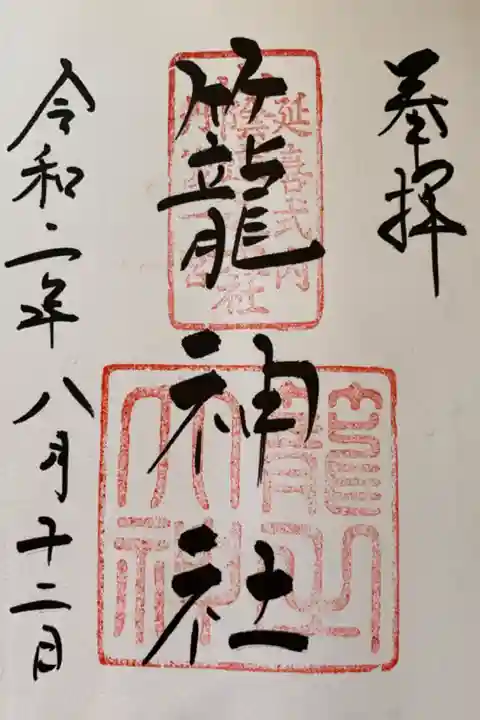 奉拝
延喜式内
丹後一宮
籠神社
籠之
大神
令和二年八月十二日